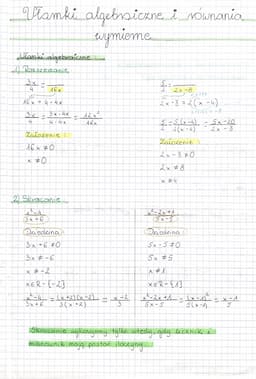 Ułamki algebraiczne i równania
wymierne
Ułamki algebraiczne:
1) Rozszerzanie
3x/4 = /16x
16x = 4·4x
3x/4 = 3x·4x/4·4x = 12x²/16x
Założenie:
16x ≠ 0
x ≠ 0
5/2 = /2x-8
2x-8 = 2(x-4)
5/2 = 5(x-4)/2(x-4) = 5x-20/2x-8
Założenie:
2x-8 ≠ 0
2x ≠ 8
x ≠ 4
2) Skracanie
x²-4/3x+6
Dziedzina:
3x+6 ≠ 0
3x ≠ -6
x ≠ -2
x∈R-{-2}
x²-4/3x+6 = (x+2)(x-2)/3(x+2) = x-2/3
x²-2x+1/5x-5
Dziedzina:
5x-5 ≠ 0
5x ≠ 5
x ≠ 1
x∈R-{1}
x²-2x+1/5x-5 = (x-1)²/5(x-1) = x-1/5
Skracanie wykonujemy tylko wtedy, gdy licznik i
mianownik mają postać iloczynu.